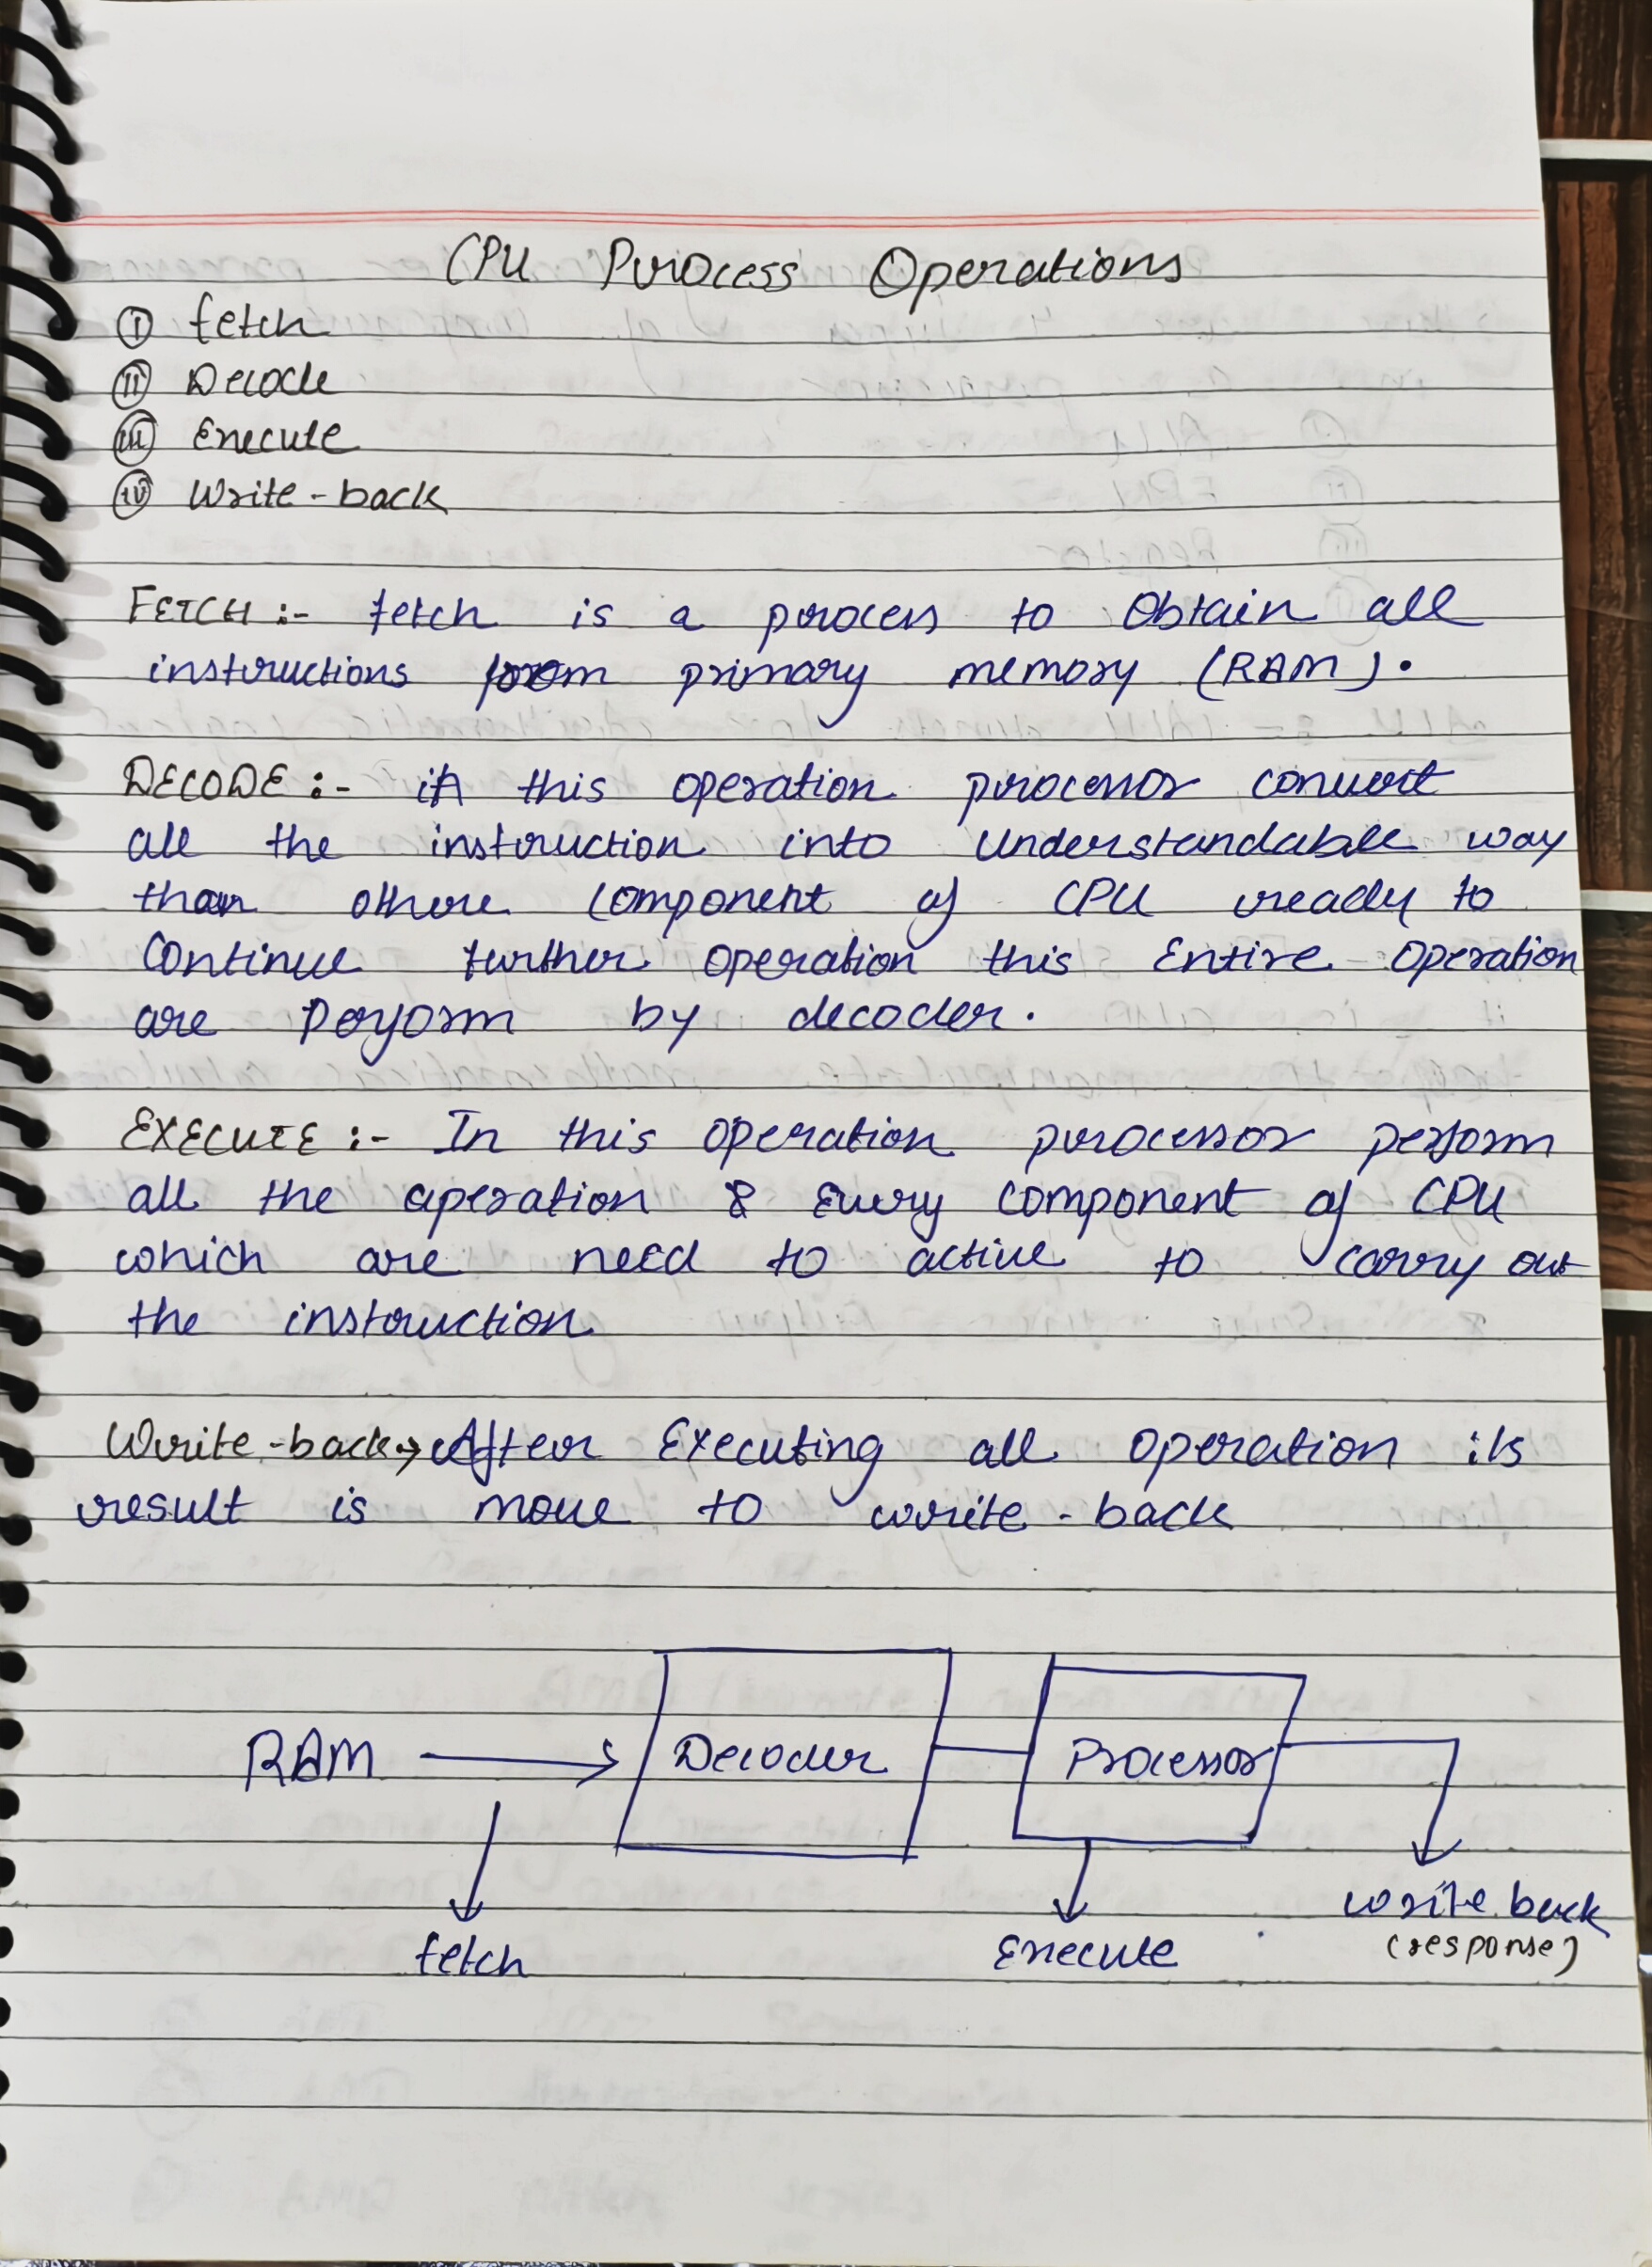 CPU Process Operations
(I) fetch
(II) Decode
(III) Execute
(IV) Write-back
FETCH :- fetch is a process to Obtain all
instructions from primary memory (RAM).
DECODE :- in this operation processor convert
all the instruction into Understandable way
than othere component of CPU ready to
Continue further operation this Entire Operation
are Perform by decoder.
EXECUTE :- In this operation processor perform
all the operation & Every component of CPU
which are need to active to carry out
the instruction
Write-back→ After Executing all Operation its
result is move to write-back
RAM → Decoder Processor
fetch Execute write back
(response)